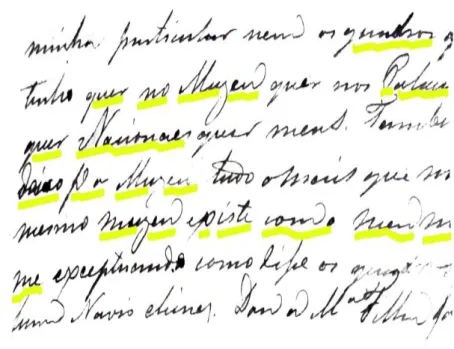 minha particular nem os quadros q
tenho quer no Muzeu quer nos Palac
quer Nacionaes quer meus. Tambe
deixo p a Muzeu tudo o mais que no
mesmo muzeu existe como meu m
me exceptuando como disse os quadros
hum Navio chines. Dou a M Filha